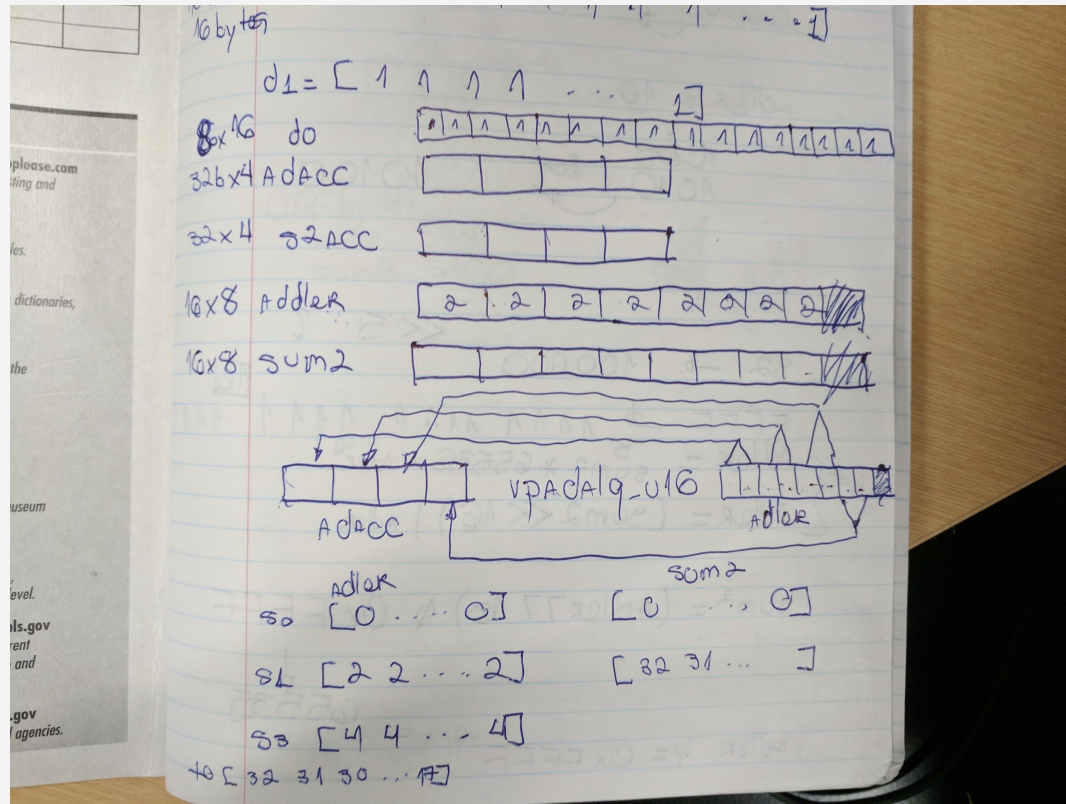 16 bytes 1 1 1 . . . . 1]
d1 = [ 1 1 1 1 . . . 1]
8x16 do 1 1 1 1 1 1 1 1 1 1 1 1 1 1 1
32bx4 AdACC
32x4 S2ACC
16x8 AddleR 2 2 2 2 2 2 2 2
16x8 sum2
ADACC vpAdAlq_u16 AdleR
AdleR sum2
S0 [0 . . . . 0] [0 . . . 0]
S1 [2 2 . . . . 2] [32 31 . . . ]
S3 [4 4 . . . 4]
t0 [32 31 30 . . . 17]
please.com
ting and
les.
dictionaries,
the
useum
level.
ols.gov
rent
and
.gov
agencies.